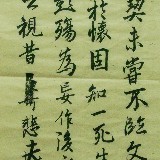 契未嘗不臨文
於懷固知一死生
彭殤為妄作後
之視昔悲夫